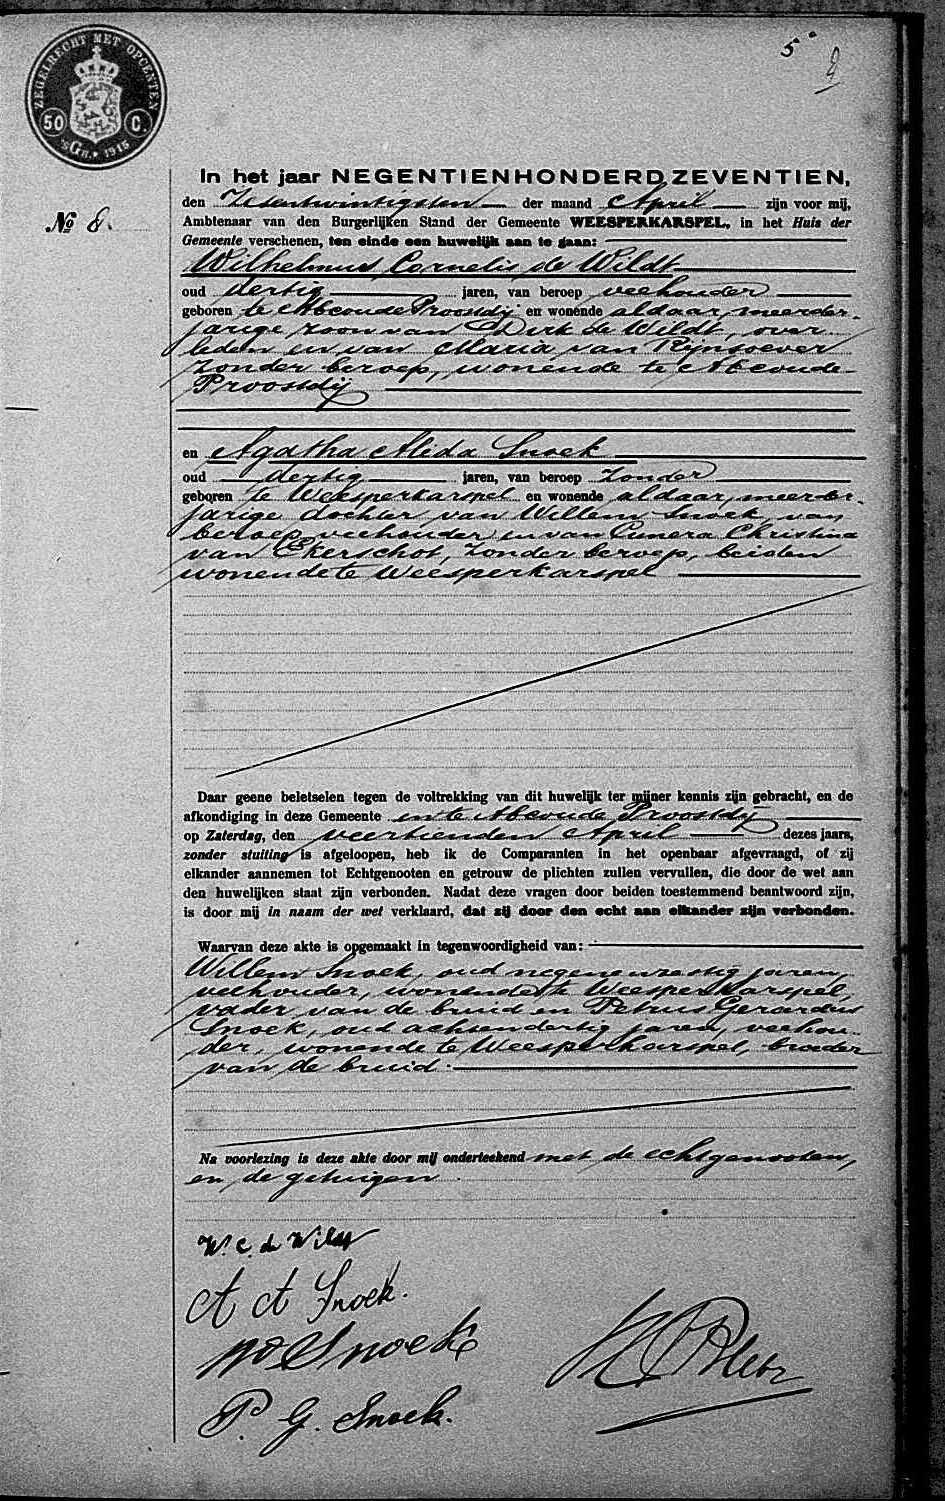 5
ZEGELRECHT MET OPCENTEN
50 C.
1915
In het jaar NEGENTIENHONDERD ZEVENTIEN,
den Zesentwintigsten der maand April zijn voor mij,
№ 8.
Ambtenaar van den Burgerlijken Stand der Gemeente WEESPERKARSPEL, in het Huis der
Gemeente verschenen, ten einde een huwelijk aan te gaan:
Wilhelmus Cornelis de Wildt
oud dertig jaren, van beroep veehouder
geboren te Abcoude Proostdij en wonende aldaar, meerder-
jarige zoon van Dirk de Wildt, over-
leden en van Maria van Rijnsoever
zonder beroep, wonende te Abcoude-
Proostdij
en Agatha Alida Snoek
oud dertig jaren, van beroep zonder
geboren te Weesperkarspel en wonende aldaar, meerder-
jarige dochter van Willem Snoek, van
beroep veehouder en van Cunera Christina
van Ekerschot, zonder beroep, beiden
wonende te Weesperkarspel
Daar geene beletselen tegen de voltrekking van dit huwelijk ter mijner kennis zijn gebracht, en de
afkondiging in deze Gemeente en te Abcoude Proostdij
op Zaterdag, den veertienden April dezes jaars,
zonder stuiting is afgeloopen, heb ik de Comparanten in het openbaar afgevraagd, of zij
elkander aannemen tot Echtgenooten en getrouw de plichten zullen vervullen, die door de wet aan
den huwelijken staat zijn verbonden. Nadat deze vragen door beiden toestemmend beantwoord zijn,
is door mij in naam der wet verklaard, dat zij door den echt aan elkander zijn verbonden.
Waarvan deze akte is opgemaakt in tegenwoordigheid van:
Willem Snoek, oud negenenzestig jaren,
veehouder, wonende te Weesperkarspel,
vader van de bruid en Petrus Gerardus
Snoek, oud achtendertig jaren, veehou-
der, wonende te Weesperkarspel, broeder
van de bruid.
Na voorlezing is deze akte door mij onderteekend met de echtgenooten,
en de getuigen.
W. C. de Wildt
A A Snoek.
Snoek
P. G. Snoek.